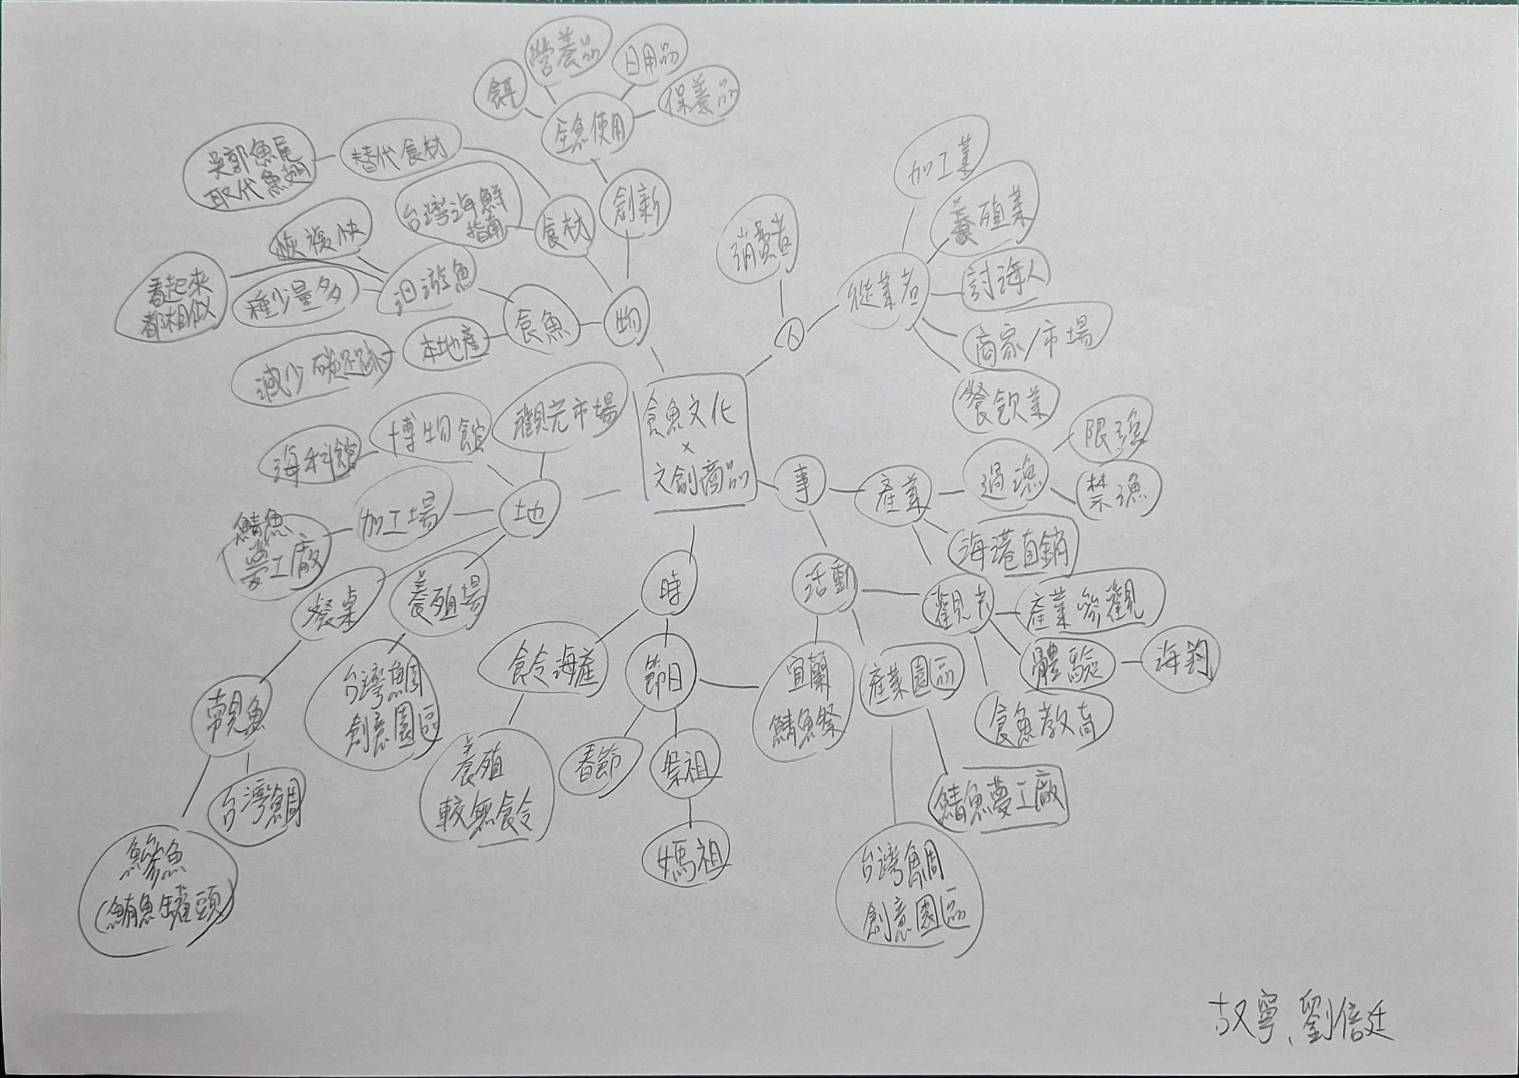 營養品
日用品
餌
保養品
全魚使用
吳郭魚尾
取代魚翅
替代食材
台灣海鮮
指南
食材
創新
恢複快
看起來
都相似
種少量多
洄游魚
食魚
物
減少碳足跡
本地產
消費者
人
從業者
加工業
養殖業
討海人
商家/市場
餐飲業
食魚文化
×
文創商品
觀光市場
博物館
海科館
地
加工場
鯖魚
夢工廠
餐桌
養殖場
台灣鯛
創意園區
台灣鯛
鰺魚
(鮪魚罐頭)
時
食令海產
養殖
較無食令
節日
春節
祭祖
媽祖
宜蘭
鯖魚祭
事
產業
過漁
限漁
禁漁
海港直銷
活動
觀光
產業參觀
體驗
海釣
食魚教育
產業園區
鯖魚夢工廠
台灣鯛
創意園區
劉信廷